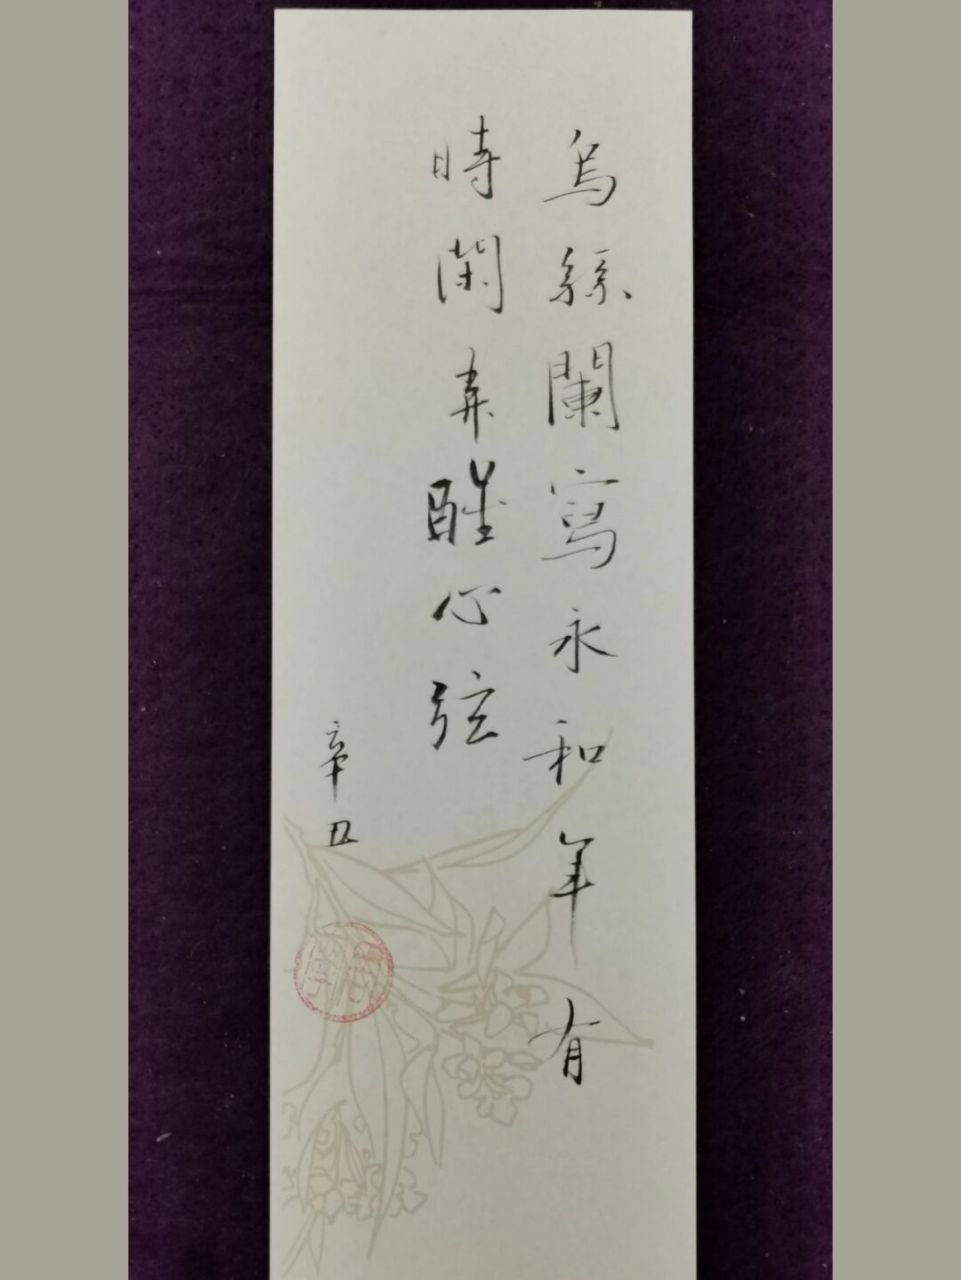 烏絲闌寫永和年有
時閑弄醒心弦
辛丑